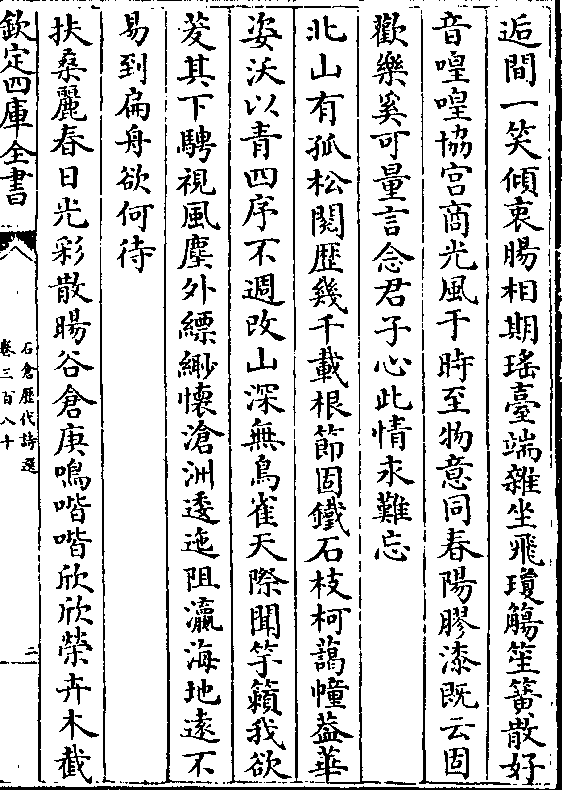 逅間一笑傾衷腸相期瑤臺端雜坐飛瓊觴笙簧散好
音喤喤協宫商光風于時至物意同春陽膠漆既云固
歡樂奚可量言念君子心此情永難忘
北山有孤松閱歴幾千載根節固鐵石枝柯藹幢葢華
姿沃以青四序不週改山深無鳥雀天際聞竽籟我欲
茇其下騁視風塵外縹緲懷滄洲逶迤阻瀛海地逺不
易到扁舟欲何待
扶桑麗春日光彩散暘谷倉庚鳴喈喈欣欣榮卉木截
欽定四庫全書
石倉歴代詩選
卷三百八十
二